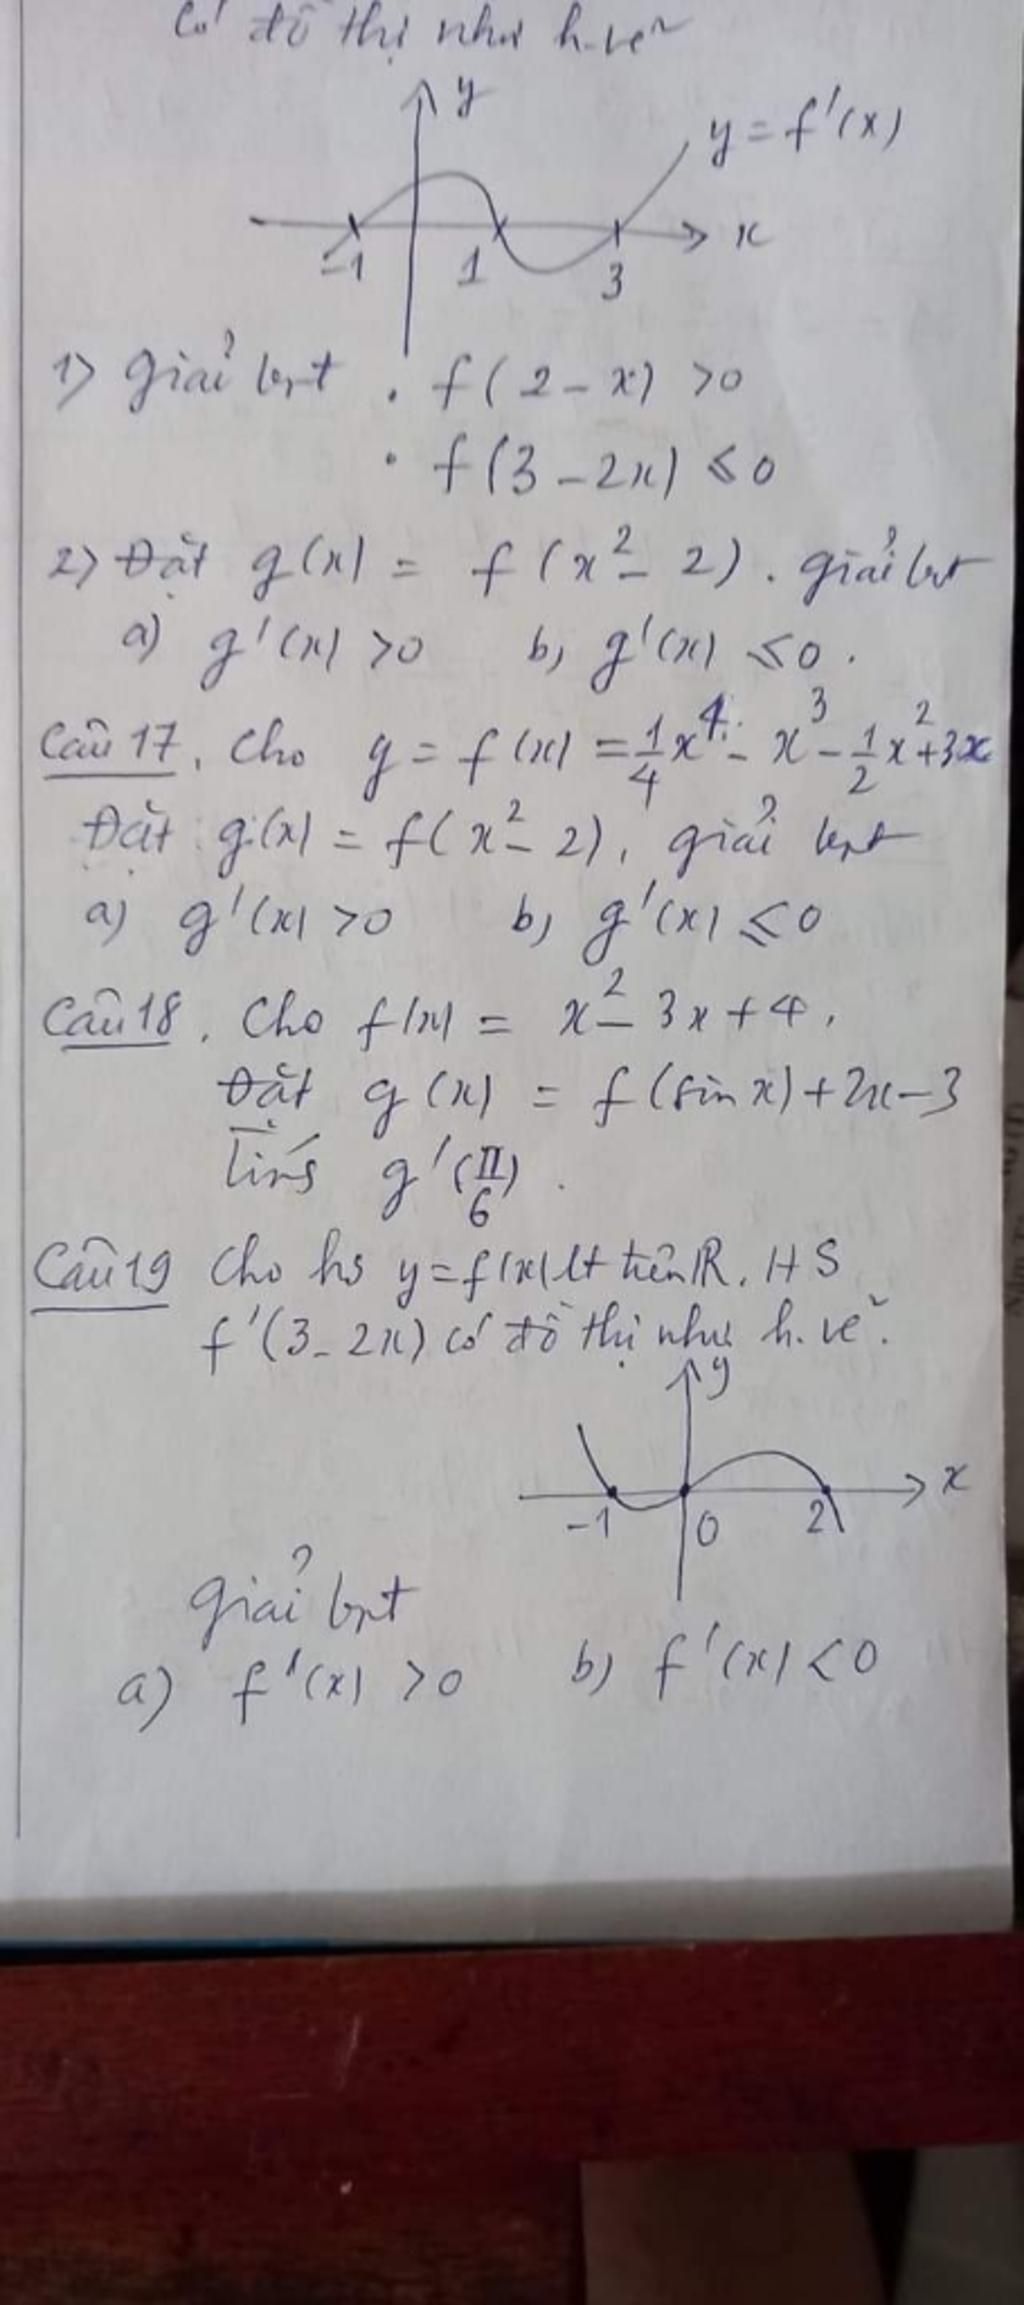 có đồ thị như h.vẽ
y
y = f'(x)
-1 1 3 x
1) giải bpt . f(2 - x) > 0
. f(3 - 2x) ≤ 0
2) Đặt g(x) = f(x² - 2). giải bpt
a) g'(x) > 0 b) g'(x) ≤ 0.
Câu 17. Cho y = f(x) = 1/4 x⁴ - x³ - 1/2 x² + 3x
Đặt g(x) = f(x² - 2), giải bpt
a) g'(x) > 0 b) g'(x) ≤ 0
Câu 18. Cho f(x) = x² - 3x + 4.
Đặt g(x) = f(sin x) + 2x - 3
Tính g'(π/6).
Câu 19 Cho hs y = f(x) lt trên ℝ. HS
f'(3 - 2x) có đồ thị như h.vẽ.
y
x
-1 0 2
giải bpt
a) f'(x) > 0 b) f'(x) < 0